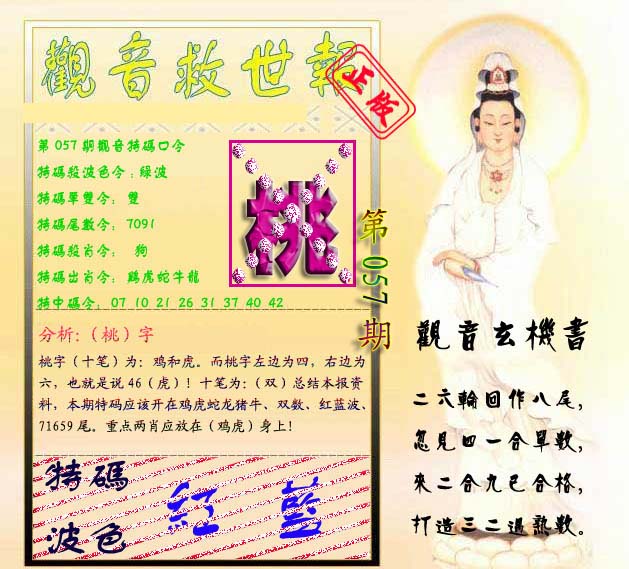 觀音救世報
正版
第057期觀音特碼口令
特碼殺波色令:綠波
特碼單雙令: 雙
特碼尾數令: 7091
特碼殺肖令: 狗
特碼出肖令: 鷄虎蛇牛龍
特中碼令: 07 10 21 26 31 37 40 42
桃
第057期
分析:(桃)字
桃字(十笔)为: 鸡和虎。而桃字左边为四, 右边为
六, 也就是说46(虎)! 十笔为:(双)总结本报资
料, 本期特码应该开在鸡虎蛇龙猪牛、双数、红蓝波、
71659尾。重点两肖应放在(鸡虎)身上!
特碼
波色
紅 藍
觀音玄機書
二六輪回作八尾,
忽見四一合單數,
來二合九已合格,
打造三二遇熟數。